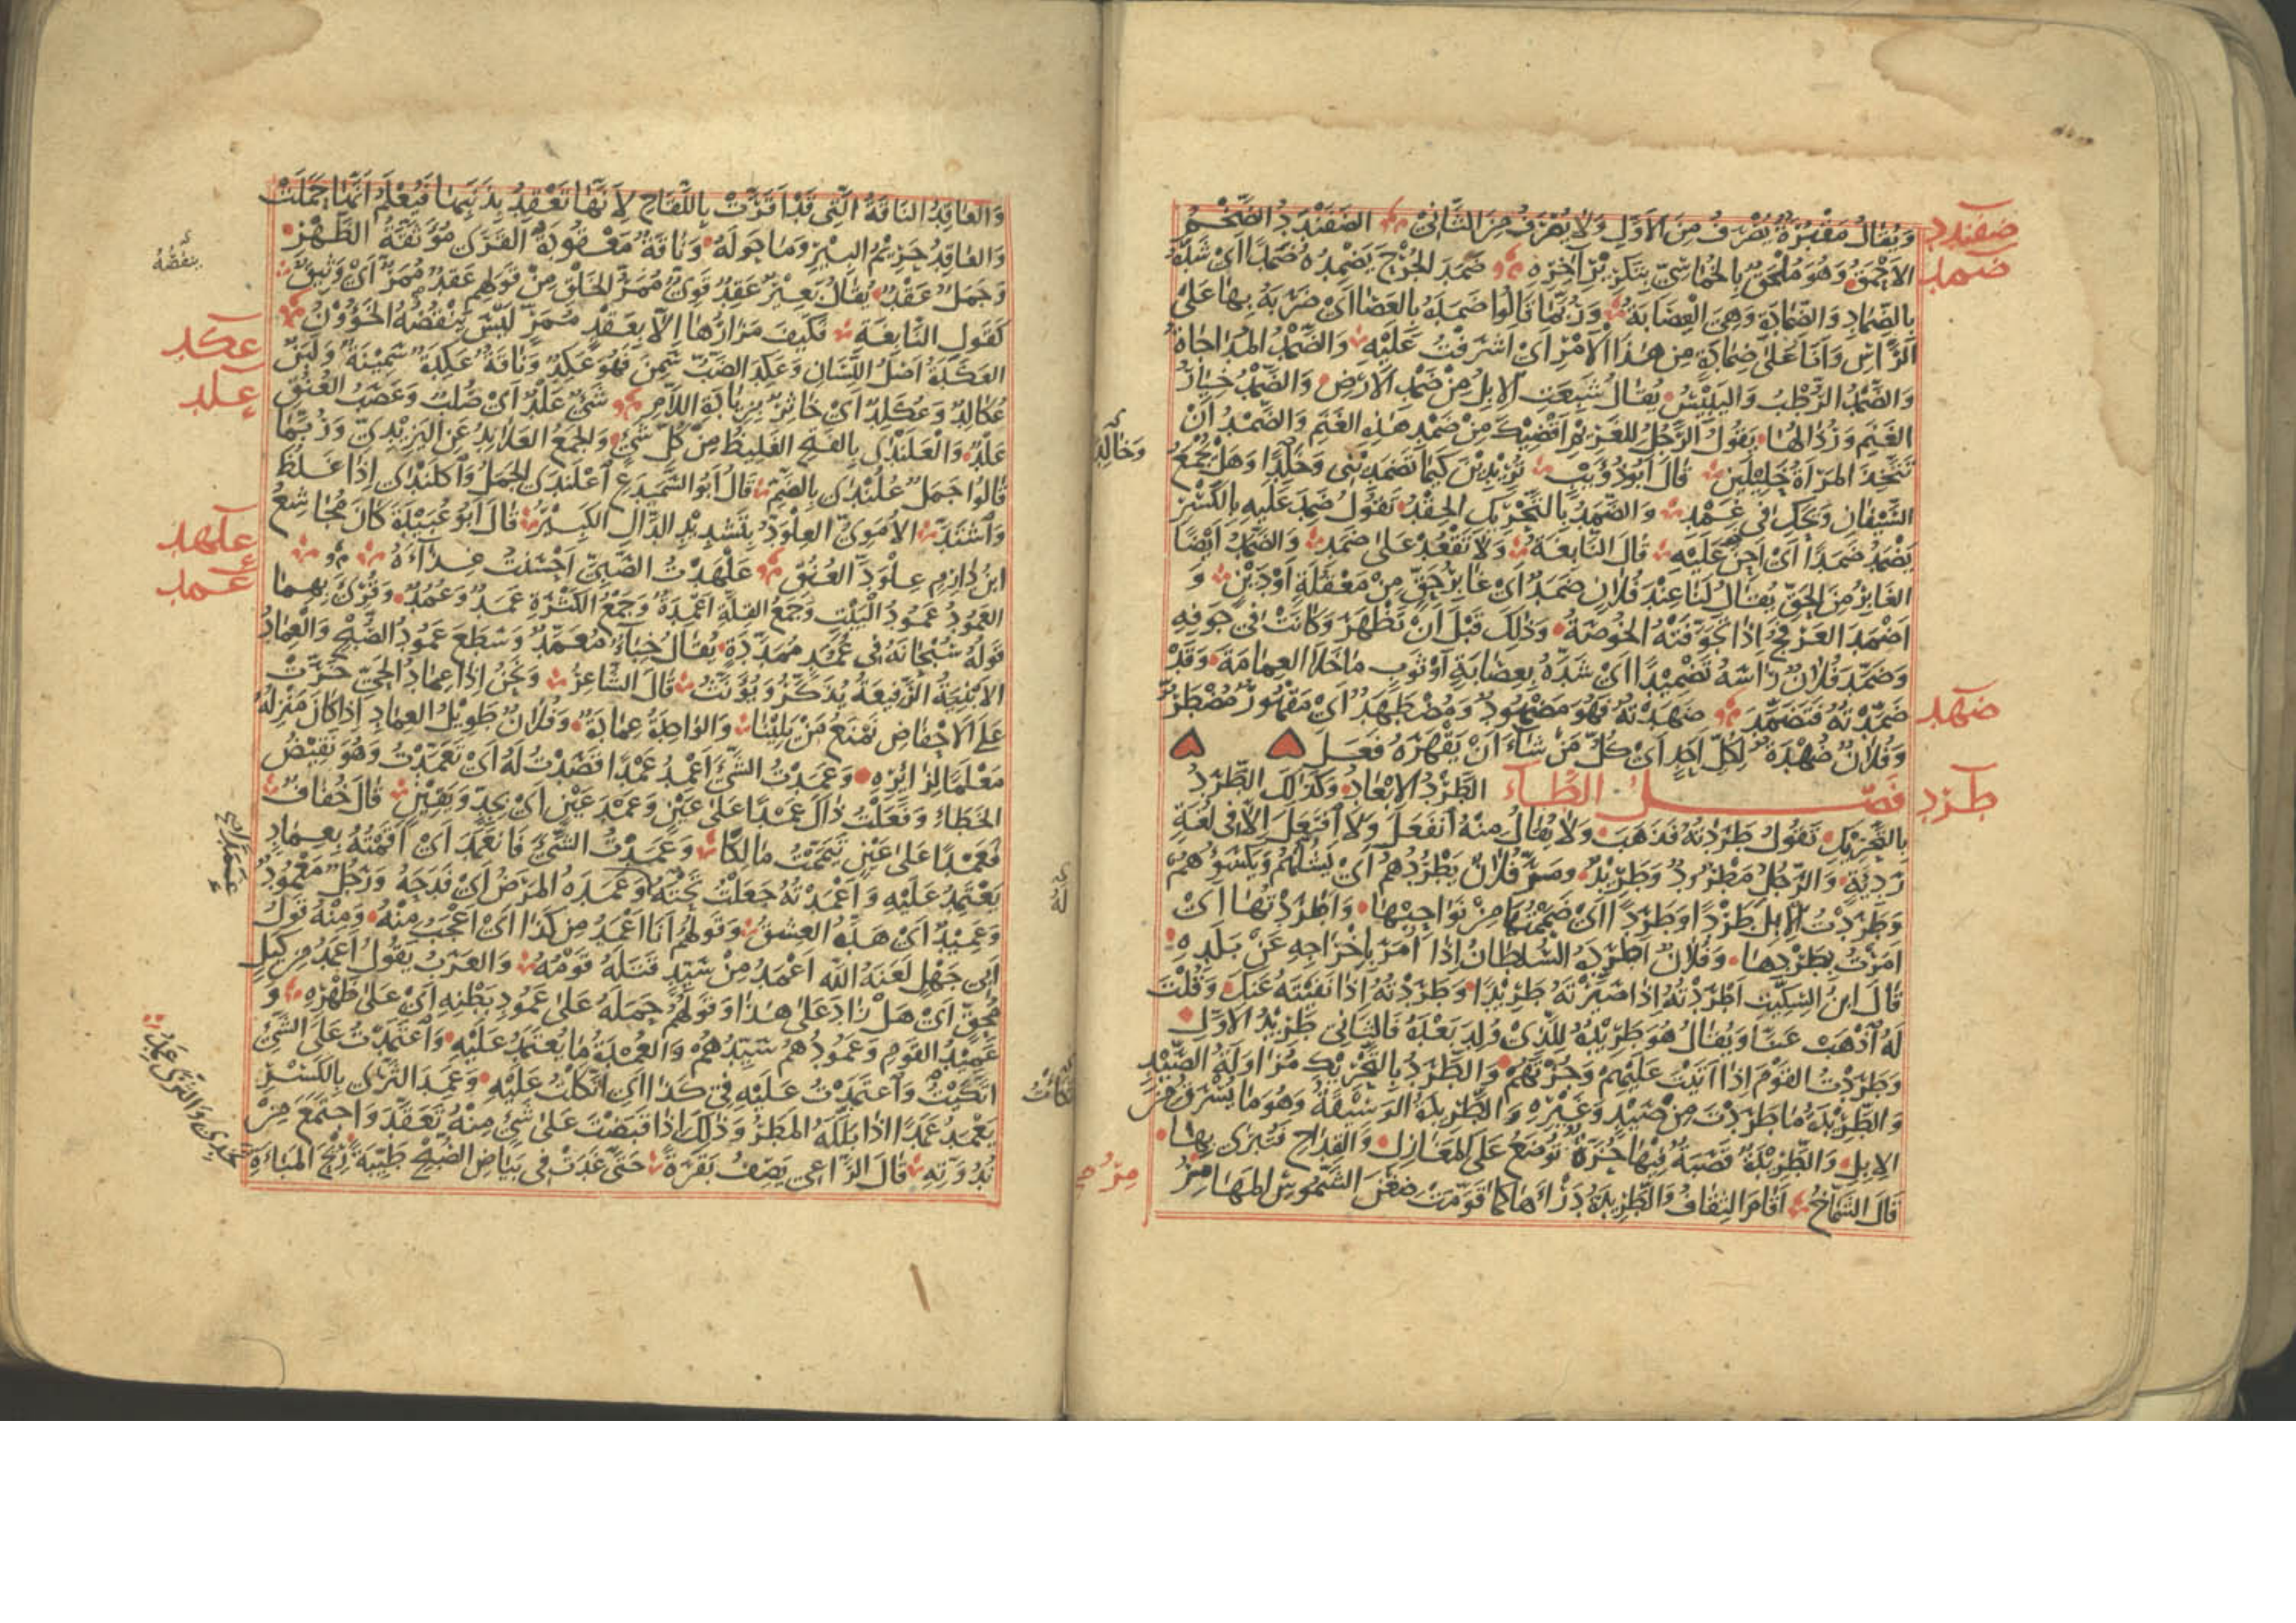 ضفندد
ضمد
ويقال مقفزة يعرف من الأول ولا يعرف من الثاني الضفندد الضخم
الأحمق وهو ملحق بالخماسي بتكرير آخره ضمد الجرح يضمده ضمدا أي شده
بالضماد والضمادة وهي العصابة وربما قالوا ضمده بالعصا أي ضربه بها على
الرأس وأنا على ضمادة من هذا الأمر أي أشرفت عليه والضمد المداجاة
والضمد الرطب واليبيس يقال شبعت الإبل من ضمد الأرض والضمد خيار
الغنم ورذالها يقول الرجل للغريم أقضيك من ضمد هذه الغنم والضمد أن
تتخذ المرأة خليلين قال أبو ذؤيب تريدين كيما تضمديني وخالدا وهل يجمع
وخالدا
السيفان ويحك في غمد والضمد بالتحريك الحقد تقول ضمد عليه بالكسر
يضمد ضمدا أي أحن عليه قال النابغة ولا تقعد على ضمد والضمد أيضا
الغابر من الحق يقال لنا عند فلان ضمد أي غابر حق من معقلة أو دين و
أضمد العرفج إذا تجوفته الخوصة وذلك قبل أن تظهر وكانت في جوفه
وضمد فلان رأسه تضميدا أي شده بعصابة أو ثوب ما خلا العمامة وقد
ضهد
ضمدته فتضمد ضهدته فهو مضهود ومضطهد أي مقهور مضطر
وفلان ضهدة لكل أحد أي كل من شاء أن يقهره فعل
طرد
فصل الطاء الطرد الإبعاد وكذلك الطرد
بالتحريك تقول طردته فذهب ولا يقال منه انفعل ولا افتعل إلا في لغة
رديئة والرجل مطرود وطريد ومر فلان يطردهم أي يشلهم ويكسؤهم
وطردت الإبل طردا وطردا أي ضممتها من نواحيها وأطردتها أي
أمرت بطردها وفلان أطرده السلطان إذا أمر بإخراجه عن بلده
قال ابن السكيت أطردته إذا صيرته طريدا وطردته إذا نفيته عنك وقلت
له اذهب عنا ويقال هو طريده للذي ولد بعده فالثاني طريد الأول
وطردت القوم إذا أتيت عليهم وجزتهم والطرد بالتحريك مزاولة الصيد
والطريدة ما طردت من صيد وغيره والطريدة الوسيقة وهو ما يسرق من
الإبل والطريدة قصبة فيها حزة توضع على المغازل والقداح فتبرى بها
قال الشماخ أقام الثقاف والطريدة درأها كما قومت ضغن الشموس المهامز
والعاقد الناقة التي قد أقرت باللقاح لأنها تعقد بذنبها فيعلم أنها حملت
والعاقد حريم البئر وما حوله وناقة معقودة القرى موثقة الظهر
وجمل عقد يقال بعير عقد قوي ممر الخلق من قولهم عقد ممر أي وثيق
ينقضه
كقول النابغة فكيف مزارها إلا بعقد ممر ليس ينقضه الخؤون
عكد
العكدة أصل اللسان وعكد الضب سمن فهو عكد وناقة عكدة سمينة ولبن
علد
عكالد وعكلد أي خاثر بزيادة اللام شيء علد أي صلب وعصب العنق
علد والعلندى بالفتح الغليظ من كل شيء والجمع العلاند عن اليزيدي وربما
قالوا جمل علندى بالضم قال أبو السميدع اعلندى الجمل واكلندى إذا غلظ
واشتد الأموي العلود بتشديد الدال الكبير قال أبو عبيدة كان مجاشع
علهد
ابن دارم علود العنق علهدت الصبي أحسنت غذاءه
عمد
العمود عمود البيت وجمع القلة أعمدة وجمع الكثرة عمد وعمد وقرئ بهما
قوله سبحانه في عمد ممددة يقال خباء معمد وسطع عمود الصبح والعماد
الأبنية الرفيعة يذكر ويؤنث قال الشاعر ونحن إذا عماد الحي خرت
على الأحفاض نمنع من يلينا والواحدة عمادة وفلان طويل العماد إذا كان منزله
معلما لزائره وعمدت الشيء أعمد عمدا قصدت له أي تعمدت وهو نقيض
الخطاء وفعلت ذاك عمدا على عين وعمد عين أي بجد ويقين قال خفاف
فعمدا على عين تيممت مالكا وعمدت الشيء فانعمد أي أقمته بعماد
يعتمد عليه وأعمدته جعلت تحته وعمده المرض أي فدحه ورجل معمود
وعميد أي هده العشق وقولهم أنا أعمد من كذا أي أعجب منه ومنه قول
أبي جهل لعنه الله أعمد من سيد قتله قومه والعرب يقول أعمد من كيل
محق أي هل زاد على هذا وقولهم حمله على عمود بطنه أي على ظهره و
عميد القوم وعمودهم سيدهم والعمدة ما يعتمد عليه واعتمدت على الشيء
اتكيت واعتمدت عليه في كذا أي اتكلت عليه وعمد الثرى بالكسر
يعمد عمدا إذا بلله المطر وذلك إذا قبضت على شيء منه تعقد واجتمع من
ندوته قال الراعي يصف بقرة حتى غدت في بياض الصبح طيبة ريح المباءة
تخدي والثرى عمد